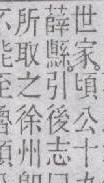 世家。頃公十九
薛縣。引後志
所取之徐州
能至魯頃